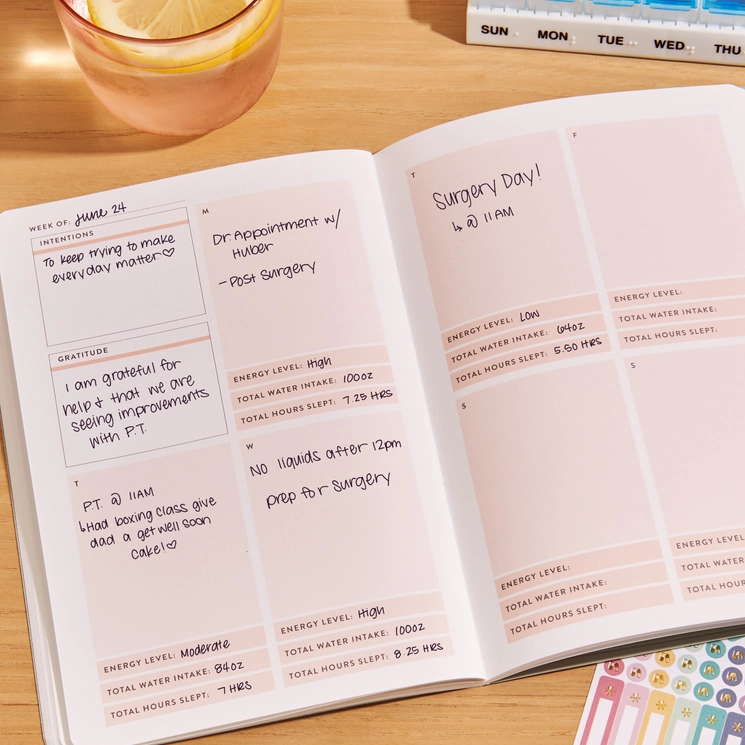 SUN MON TUE WED THU
WEEK OF: June 24
INTENTIONS
To keep trying to make
everyday matter♡
GRATITUDE
I am grateful for
help & that we are
seeing improvements
with P.T.
M
Dr. Appointment w/
Huber
- Post Surgery
ENERGY LEVEL: High
TOTAL WATER INTAKE: 100oz
TOTAL HOURS SLEPT: 7.25 HRS
T
P.T. @ 11AM
↳Had boxing class give
dad a get well soon
cake!♡
ENERGY LEVEL: Moderate
TOTAL WATER INTAKE: 84oz
TOTAL HOURS SLEPT: 7 HRS
W
No liquids after 12pm
prep for surgery
ENERGY LEVEL: High
TOTAL WATER INTAKE: 100oz
TOTAL HOURS SLEPT: 8.25 HRS
T
Surgery Day!
↳ @ 11AM
ENERGY LEVEL: LOW
TOTAL WATER INTAKE: 64oz
TOTAL HOURS SLEPT: 5.50 HRS
F
ENERGY LEVEL:
TOTAL WATER INTAKE:
TOTAL HOURS SLEPT:
S
ENERGY LEVEL:
TOTAL WATER INTAKE:
TOTAL HOURS SLEPT:
S
ENERGY LEVEL
TOTAL WATER
TOTAL HOURS